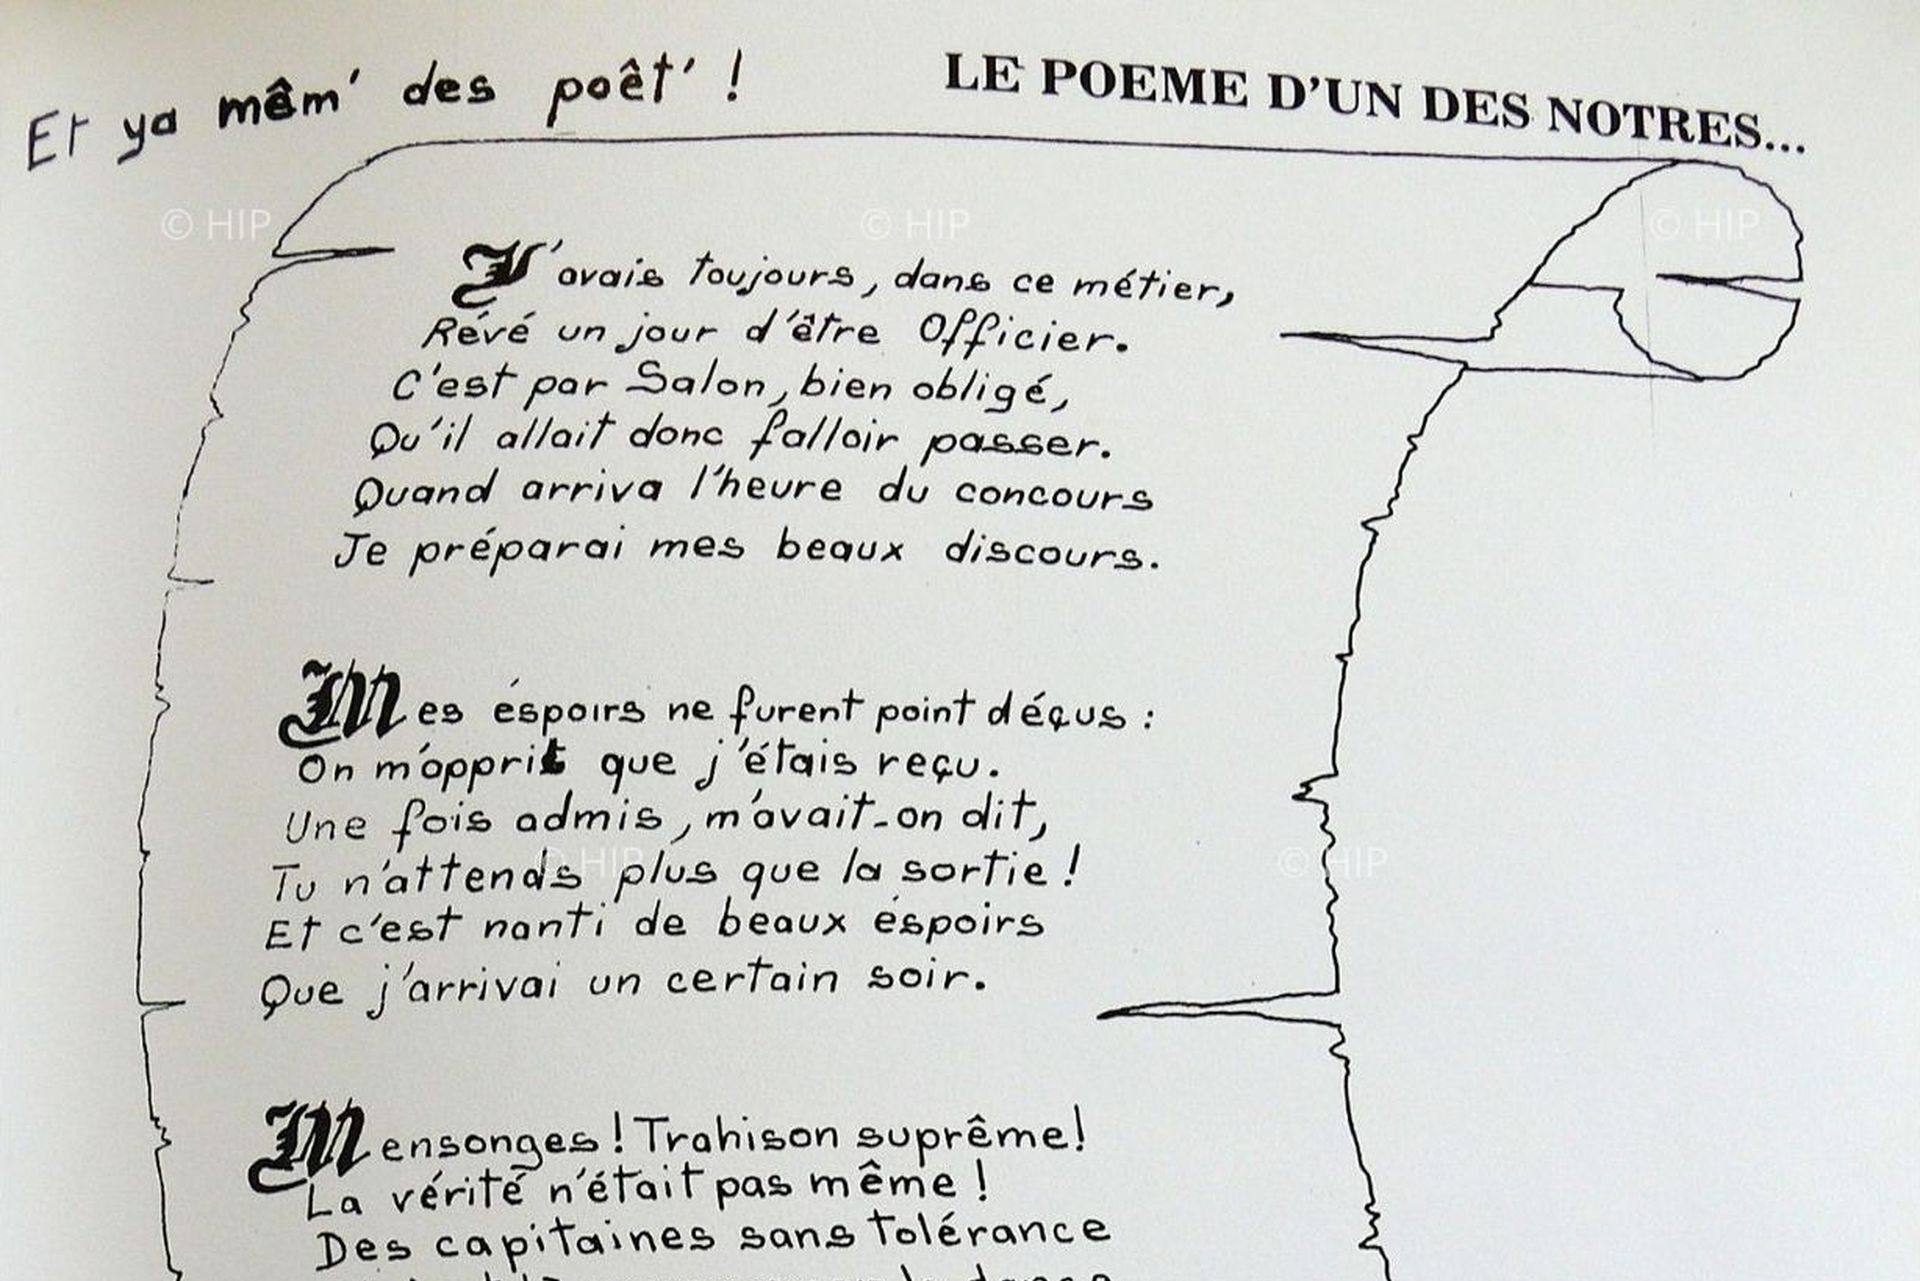 Et ya mêm' des poêt' !
LE POEME D'UN DES NOTRES...
J'avais toujours, dans ce métier,
Rêvé un jour d'être Officier.
C'est par Salon, bien obligé,
Qu'il allait donc falloir passer.
Quand arriva l'heure du concours
Je préparai mes beaux discours.
Mes éspoirs ne furent point déçus :
On m'apprit que j'étais reçu.
Une fois admis, m'avait-on dit,
Tu n'attends plus que la sortie !
Et c'est nanti de beaux éspoirs
Que j'arrivai un certain soir.
Mensonges ! Trahison suprême !
La vérité n'était pas même !
Des capitaines sans tolérance
© HIP
© HIP
© HIP
© HIP
© HIP